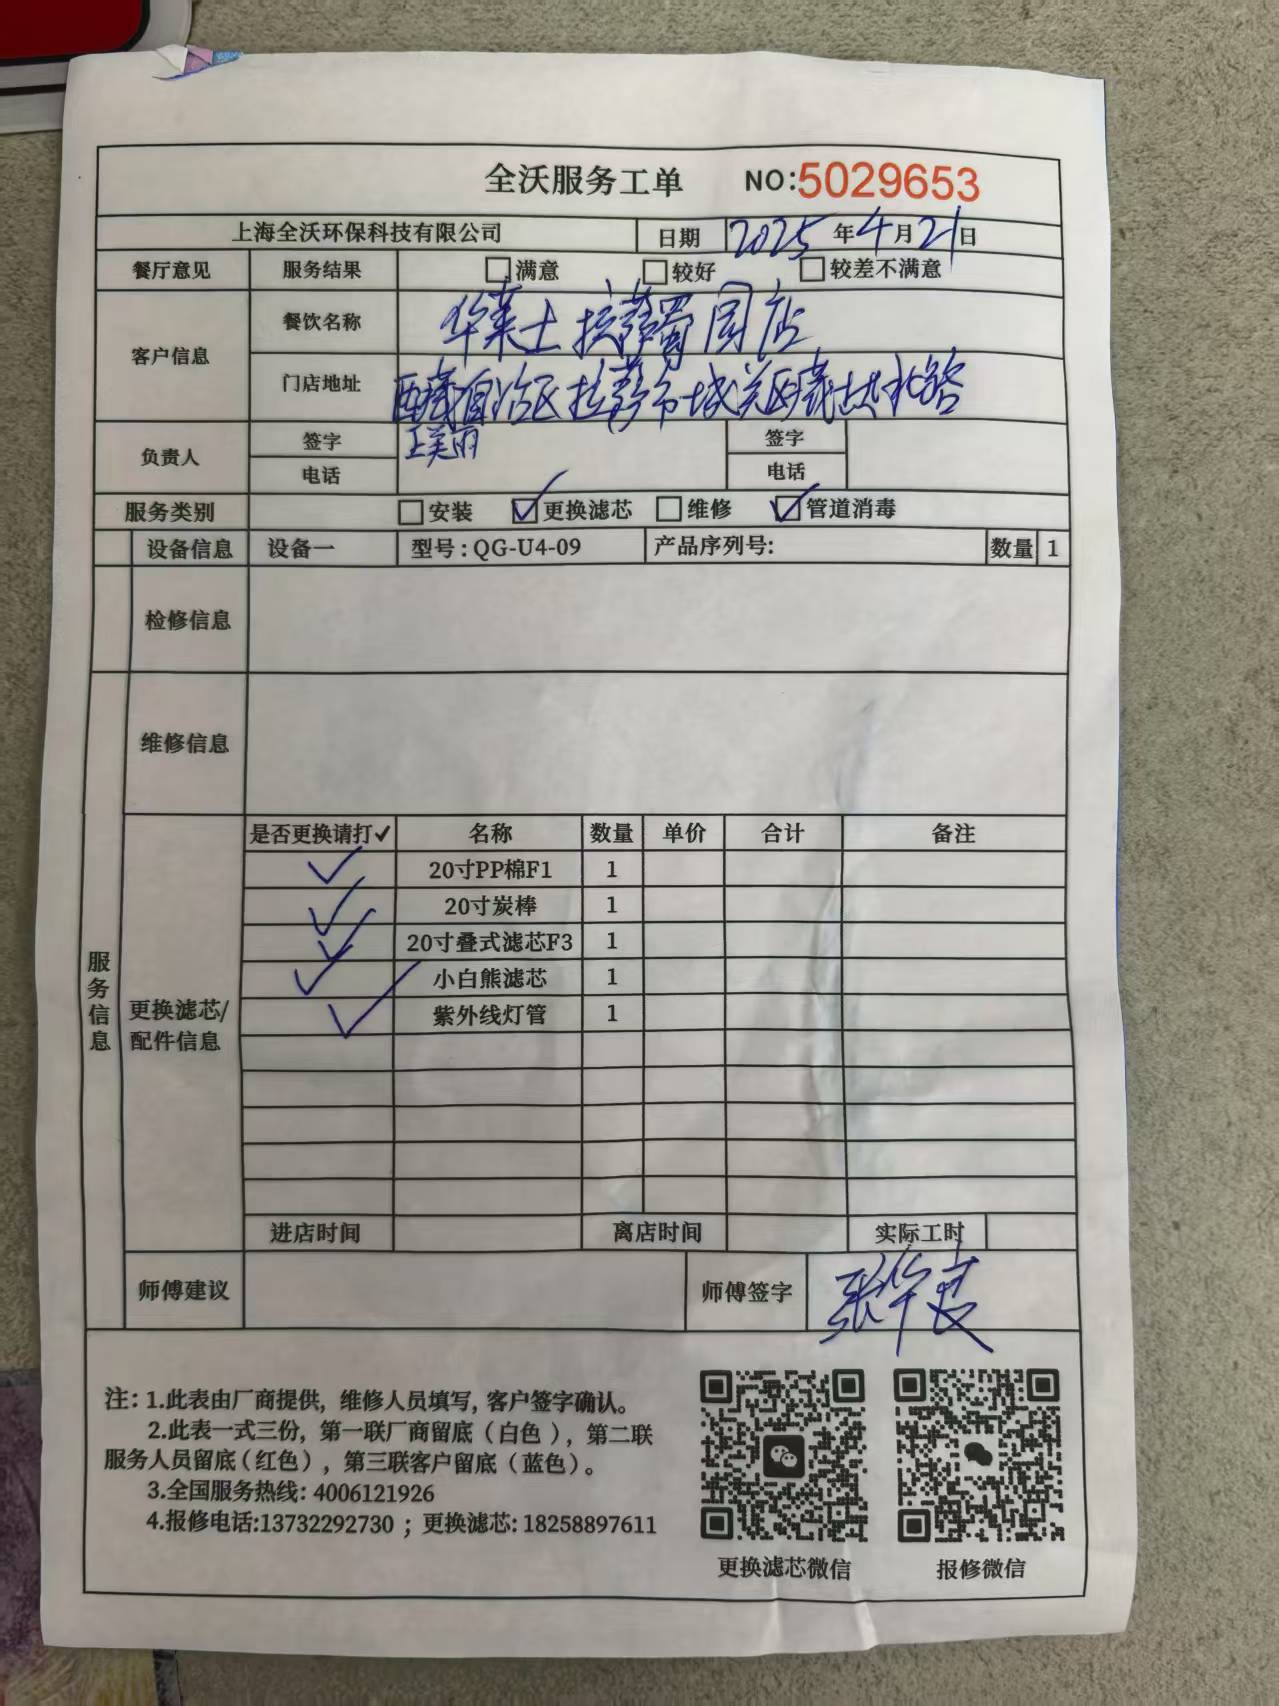 全沃服务工单 NO:5029653
上海全沃环保科技有限公司 日期 2025年4月21日
餐厅意见 服务结果 □满意 □较好 □较差不满意
客户信息 餐饮名称 华莱士拉萨蜀园店
门店地址 西藏自治区拉萨市城关区藏大北路
负责人 签字 王美丽 签字
电话 电话
服务类别 □安装 ☑更换滤芯 □维修 ☑管道消毒
设备信息 设备一 型号:QG-U4-09 产品序列号: 数量 1
检修信息
维修信息
服务信息
更换滤芯/配件信息
是否更换请打✓ 名称 数量 单价 合计 备注
✓ 20寸PP棉F1 1
✓ 20寸炭棒 1
✓ 20寸叠式滤芯F3 1
✓ 小白熊滤芯 1
✓ 紫外线灯管 1
进店时间 离店时间 实际工时
师傅建议 师傅签字 张华良
注:1.此表由厂商提供,维修人员填写,客户签字确认。
2.此表一式三份,第一联厂商留底(白色),第二联
服务人员留底(红色),第三联客户留底(蓝色)。
3.全国服务热线:4006121926
4.报修电话:13732292730 ;更换滤芯:18258897611
更换滤芯微信 报修微信